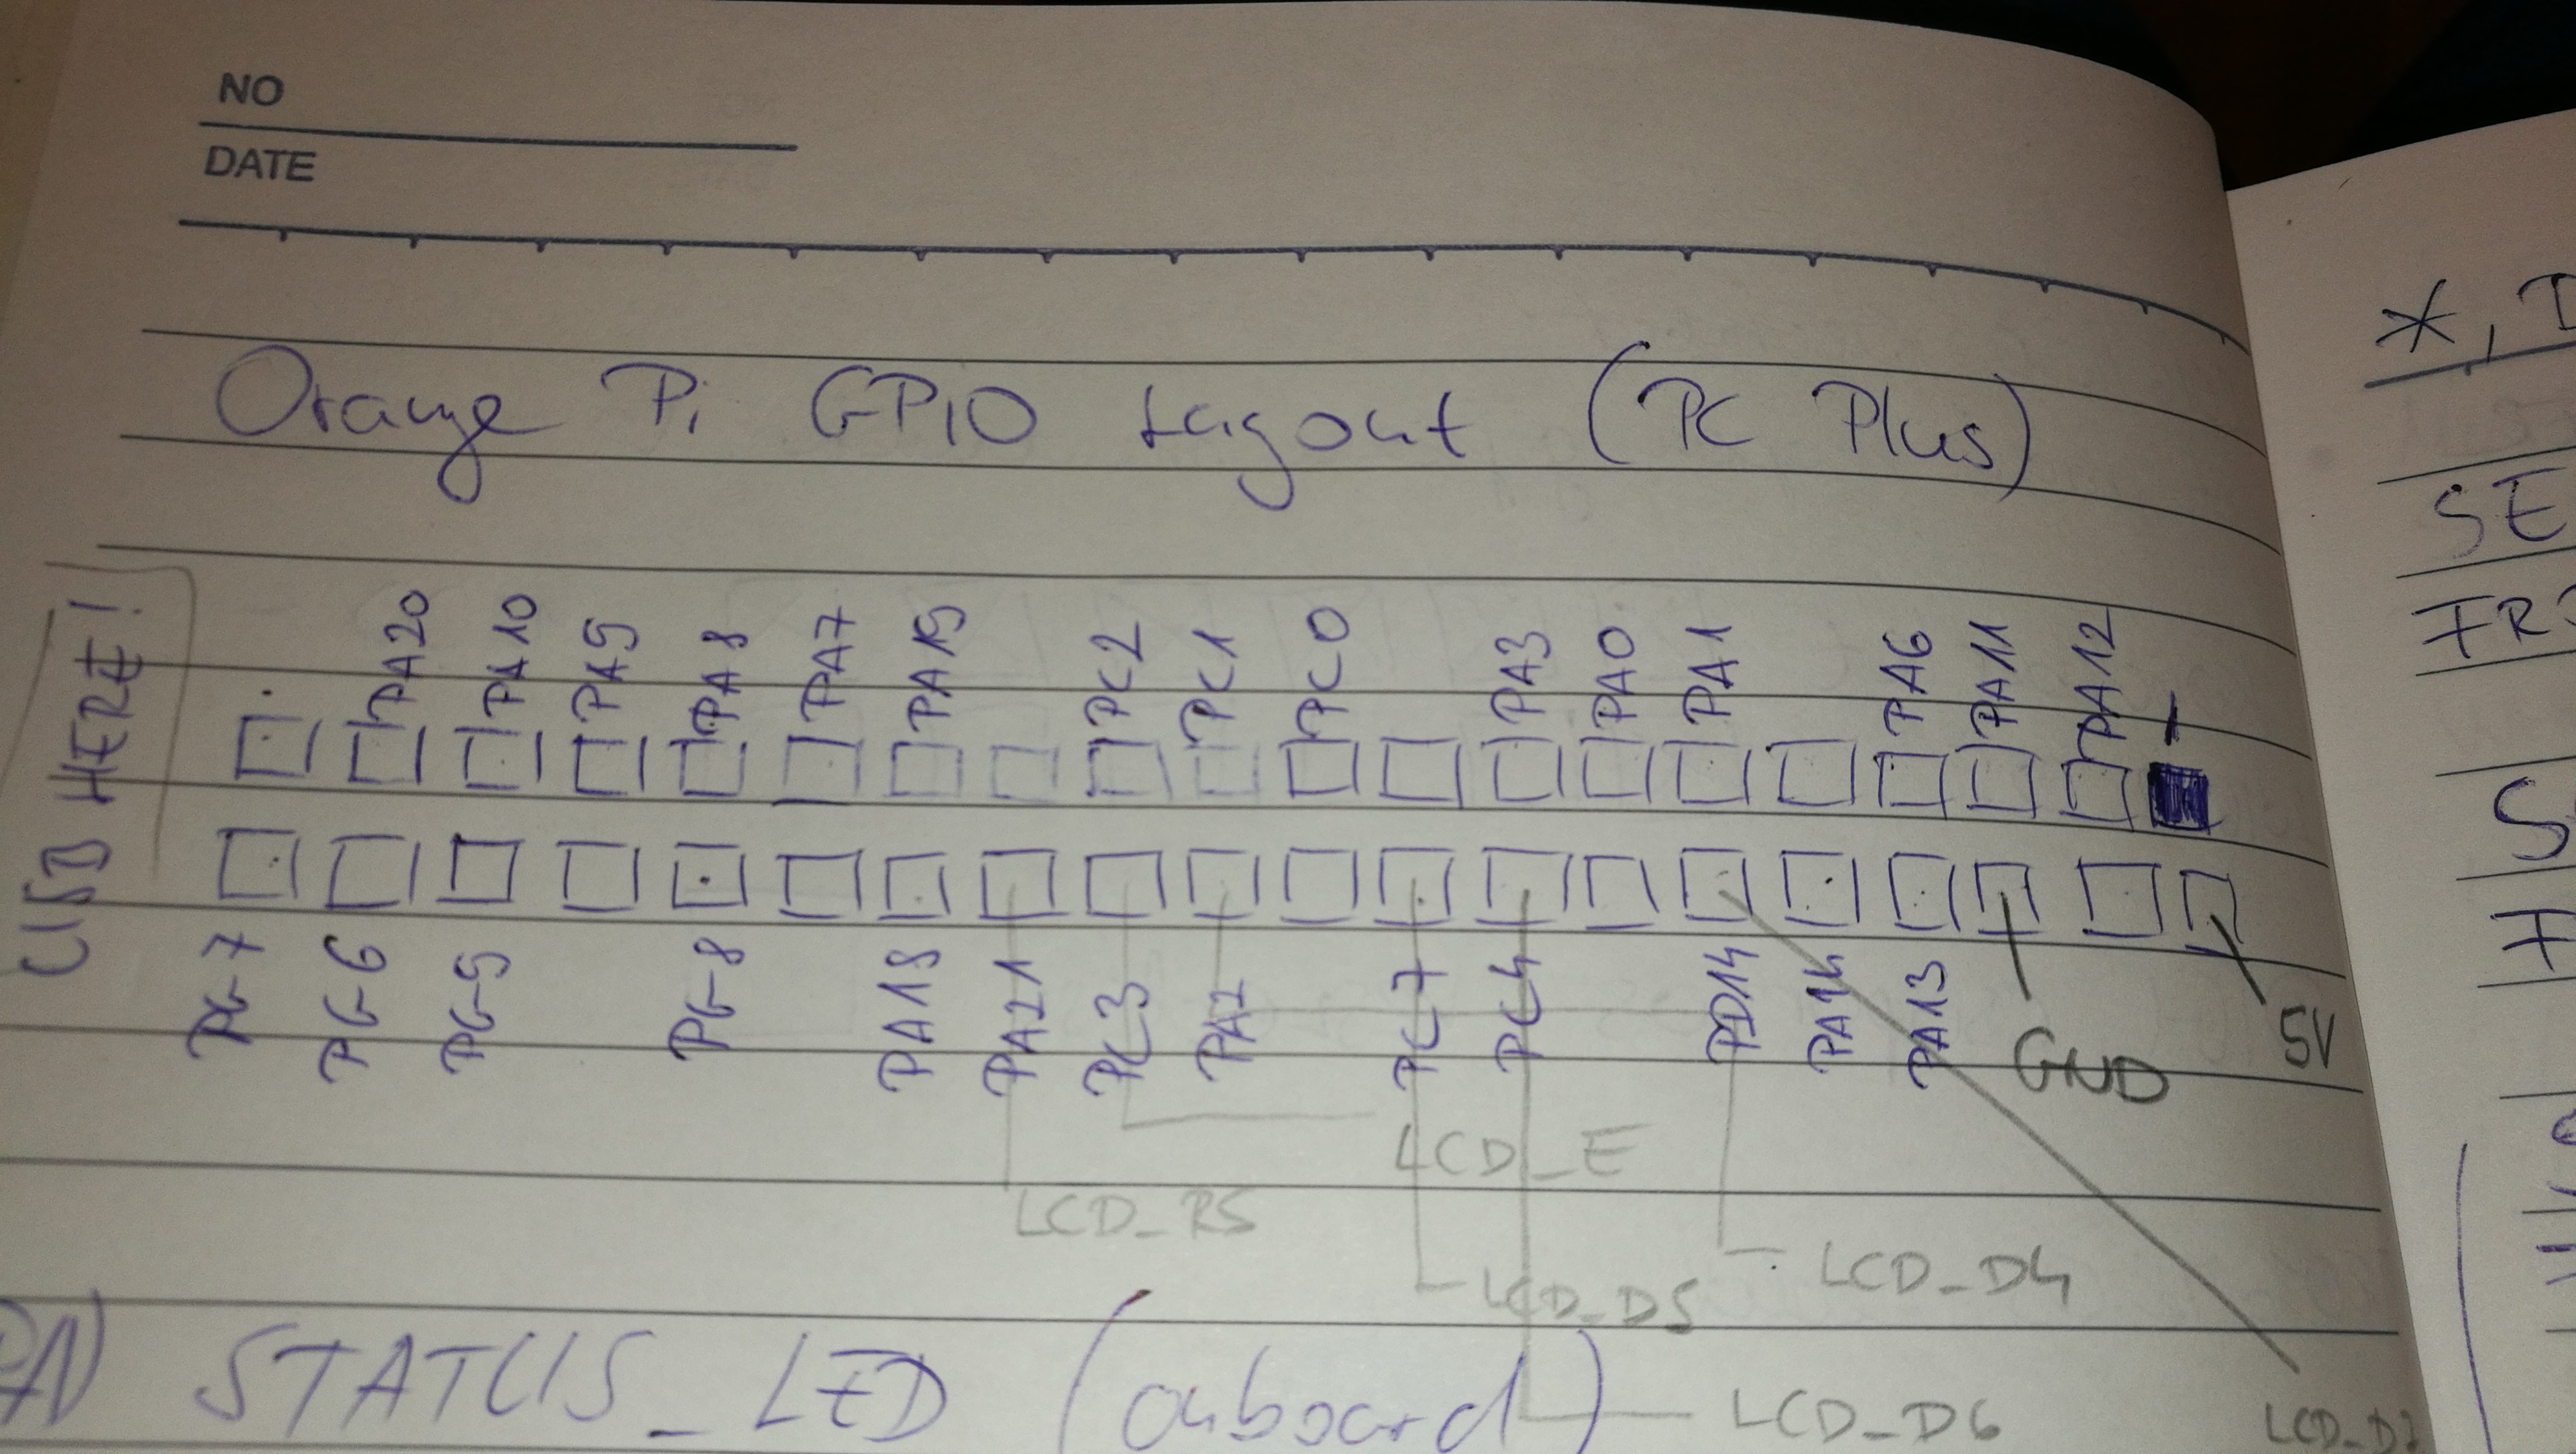 NO
DATE
Orange Pi GPIO Layout (PC Plus)
USB HERE!
PA20 PA10 PA9 PA8 PA7 PA19 PC2 PC1 PC0 PA3 PA0 PA1 PA6 PA11 PA12 1
PG7 PG6 PG9 PG8 PA18 PA21 PC3 PA2 PC7 PC4 PD14 PA14 PA13 GND 5V
LCD_E
LCD_RS
LCD_D4
LCD_D5
STATUS_LED (onboard)
LCD_D6
LCD_D7
*,
SE